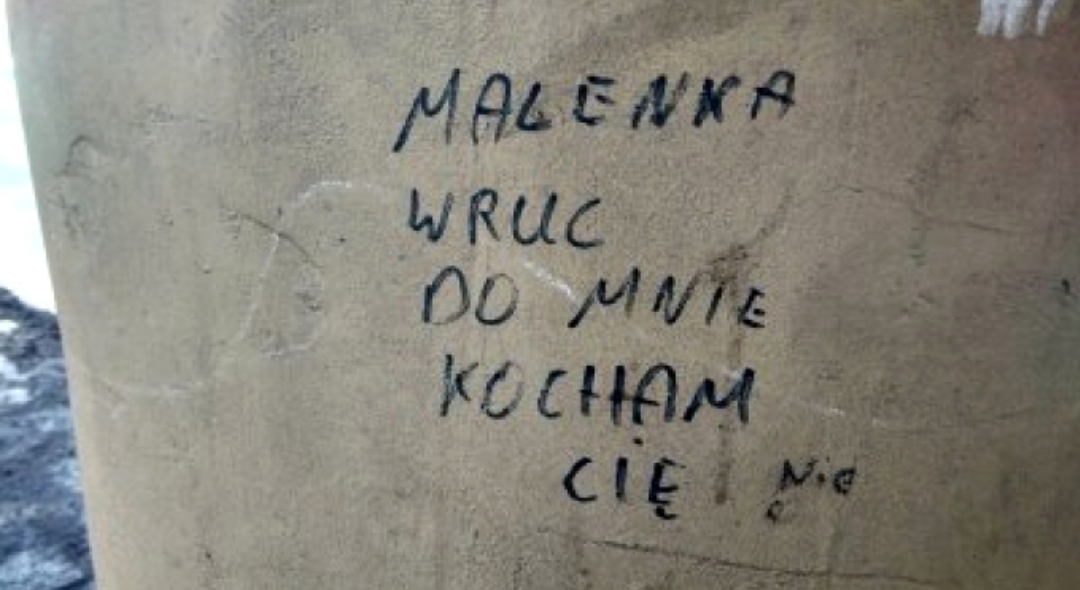 MALENKA
WRUC
DO MNIE
KOCHAM
CIĘ Nie